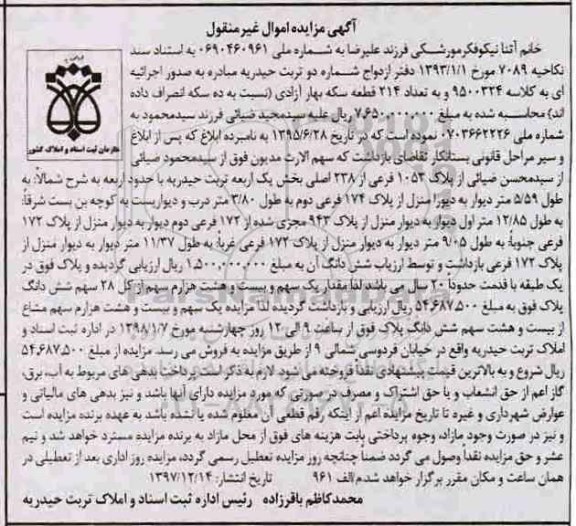 آگهی مزایده اموال غیرمنقول
خانم آتنا نیکوفکرمورشکی فرزند علیرضا به شماره ملی ۰۶۹۰۴۶۰۹۶۱ به استناد سند
نکاحیه ۷۰۸۹ مورخ ۱۳۹۳/۱/۱ دفتر ازدواج شماره دو تربت حیدریه مبادره به صدور اجرائیه
ای به کلاسه ۹۵۰۰۳۲۴ و به تعداد ۲۱۴ قطعه سکه بهار آزادی (نسبت به ده سکه انصراف داده
اند) محاسبه شده به مبلغ ریال علیه سیدمجید ضیائی فرزند سیدمحمود به
شماره ملی ۰۷۰۳۶۶۲۲۲۶ نموده است که در تاریخ ۱۳۹۵/۶/۲۸ به نامبرده ابلاغ که پس از ابلاغ
و سیر مراحل قانونی بستانکار تقاضای بازداشت که سهم الارث مدیون فوق از سیدمحمود ضیائی
از سیدمحسن ضیائی از پلاک ۱۰۵۳ فرعی از ۲۳۸ اصلی بخش یک اربعه تربت حیدریه با حدود اربعه به شرح شمالاً: به
طول ۵/۵۹ متر دیوار به دیوار منزل از پلاک ۱۷۴ فرعی دوم به طول ۳/۸۰ متر درب و دیواریست به کوچه بن بست شرقاً:
به طول ۱۲/۸۵ متر اول دیوار به دیوار منزل از پلاک ۹۴۳ مجزی شده از ۱۷۲ فرعی دوم دیوار به دیوار منزل از پلاک ۱۷۲
فرعی جنوباً: به طول ۹/۰۵ متر دیوار به دیوار منزل از پلاک ۱۷۲ فرعی غرباً: به طول ۱۱/۳۷ متر دیوار به دیوار منزل از
پلاک ۱۷۲ فرعی بازداشت و توسط ارزیاب شش دانگ آن به مبلغ ۱,۵۰۰,۰۰۰,۰۰۰ ریال ارزیابی گردیده و پلاک فوق در
یک طبقه با قدمت حدوداً ۲۰ سال می باشد لذا مقدار یک سهم و بیست و هشت هزارم سهم از کل ۲۸ سهم شش دانگ
پلاک فوق به مبلغ ۵۴,۶۸۷,۵۰۰ ریال ارزیابی و بازداشت گردیده لذا مزایده یک سهم و بیست و هشت هزارم سهم مشاع
از بیست و هشت سهم شش دانگ پلاک فوق از ساعت ۹ الی ۱۲ روز چهارشنبه مورخ ۱۳۹۸/۱/۷ در اداره ثبت اسناد و
املاک تربت حیدریه واقع در خیابان فردوسی شمالی ۹ از طریق مزایده به فروش می رسد. مزایده از مبلغ ۵۴,۶۸۷,۵۰۰
ریال شروع و به بالاترین قیمت پیشنهادی نقداً فروخته می شود. لازم به ذکر است پرداخت بدهی های مربوط به آب، برق،
گاز اعم از حق انشعاب و یا حق اشتراک و مصرف در صورتی که مورد مزایده دارای آنها باشد و نیز بدهی های مالیاتی و
عوارض شهرداری و غیره تا تاریخ مزایده اعم از اینکه رقم قطعی آن معلوم شده یا نشده باشد به عهده برنده مزایده است
و نیز در صورت وجود مازاد، وجوه پرداختی بابت هزینه های فوق از محل مازاد به برنده مزایده مسترد خواهد شد و نیم
عشر و حق مزایده نقداً وصول می گردد ضمناً چنانچه روز مزایده تعطیل رسمی گردد، مزایده روز اداری بعد از تعطیلی در
همان ساعت و مکان مقرر برگزار خواهد شد.م/الف ۹۶۱ تاریخ انتشار: ۱۳۹۷/۱۲/۱۴
محمدکاظم باقرزاده رئیس اداره ثبت اسناد و املاک تربت حیدریه
سازمان ثبت اسناد و املاک کشور